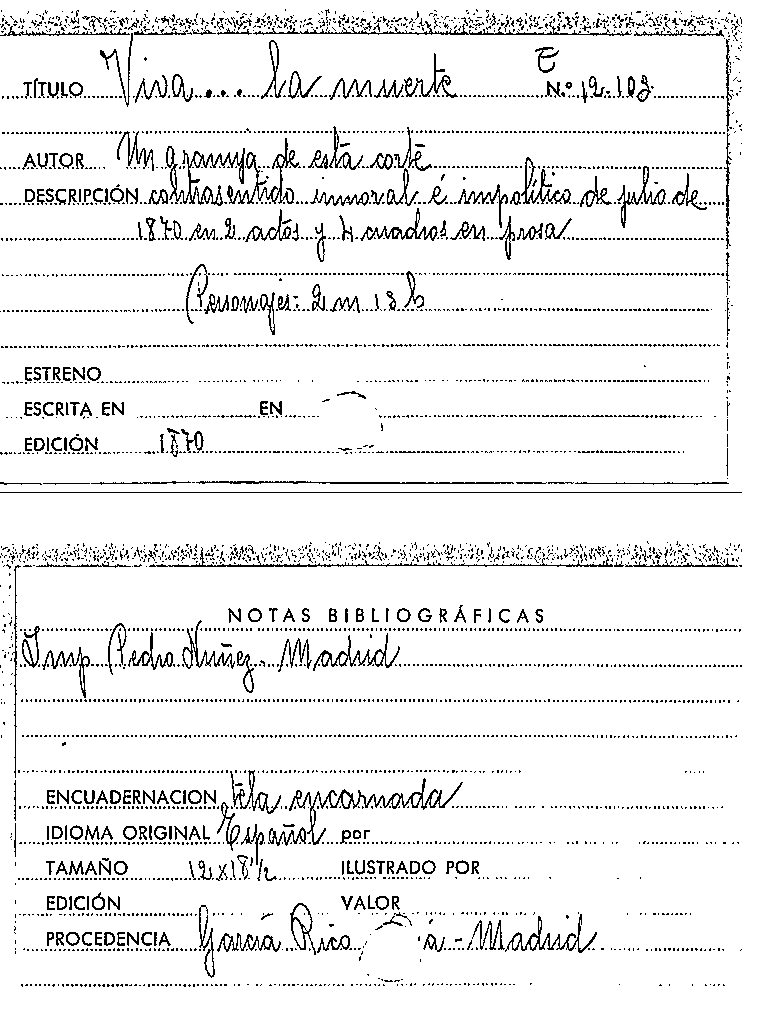 TÍTULO Viva... la muerte E
N.º 12-103
AUTOR Un granuja de esta corte
DESCRIPCIÓN contrasentido inmoral é impolítico de julio de
1870 en 2 actos y 4 cuadros en prosa
Personajes: 2 m 13 h
ESTRENO
ESCRITA EN EN
EDICIÓN 1870
NOTAS BIBLIOGRÁFICAS
Imp. Pedro Núñez. Madrid
ENCUADERNACION tela encarnada
IDIOMA ORIGINAL Español por
TAMAÑO 12 x 18 1/2 ILUSTRADO POR
EDICIÓN VALOR
PROCEDENCIA García Rico - Madrid